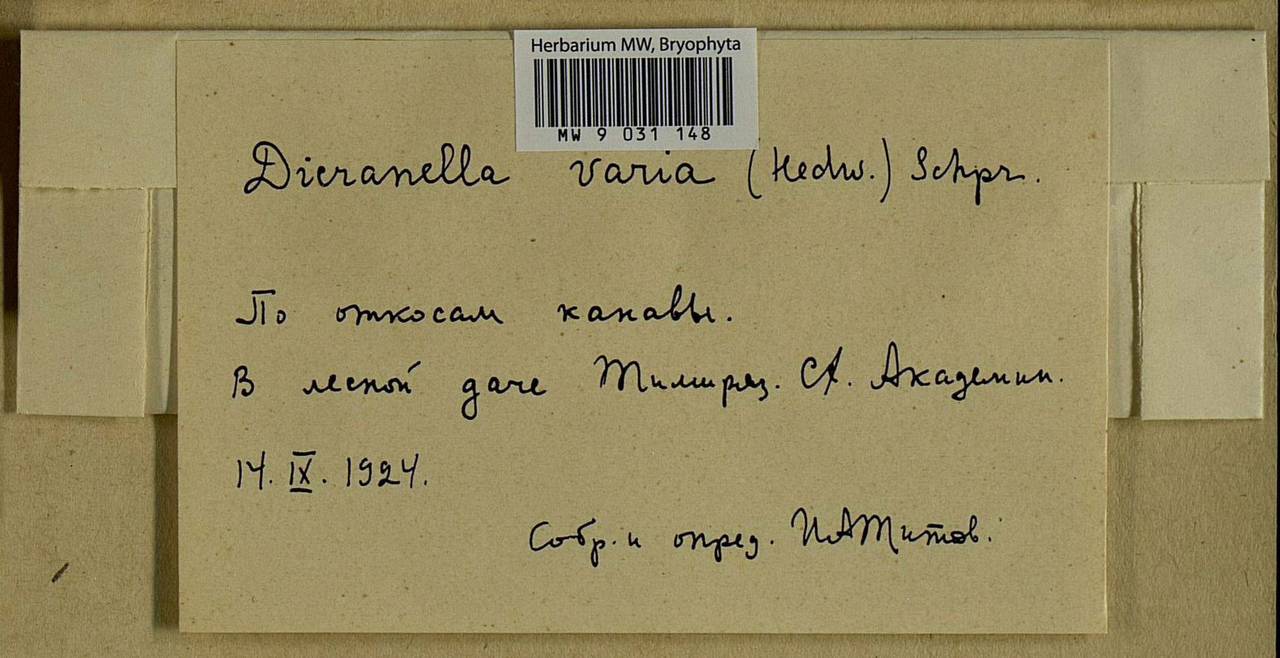 Herbarium MW, Bryophyta
MW 9 031 148
Dicranella varia (Hedw.) Schpr.
По откосам канавы.
В лесной даче Тимиряз. СХ. Академии.
14. IX. 1924.
Собр. и опред. И.А.Титов.